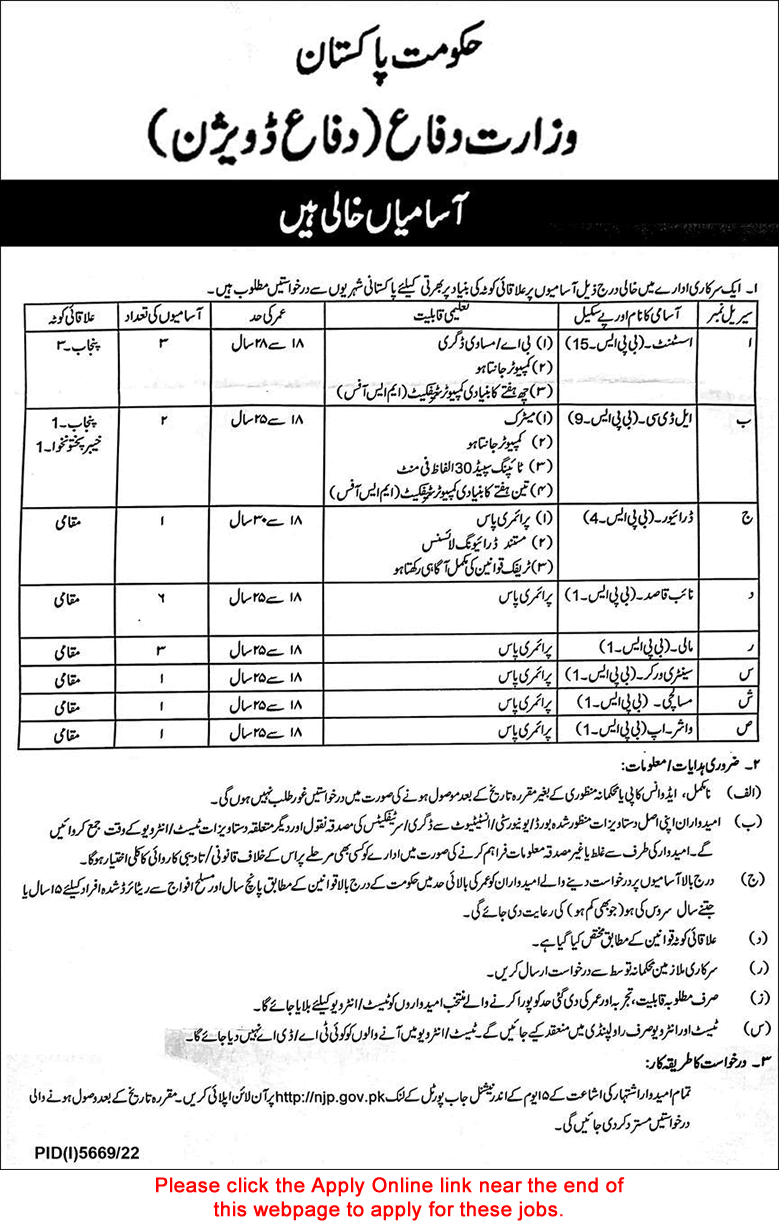 حکومت پاکستان
وزارت دفاع (دفاع ڈویژن)
آسامیاں خالی ہیں
۱۔ ایک سرکاری ادارے میں خالی درج ذیل آسامیوں پر علاقائی کوٹہ کی بنیاد پر بھرتی کیلئے پاکستانی شہریوں سے درخواستیں مطلوب ہیں۔
سیریل نمبر آسامی کا نام اور پے سکیل تعلیمی قابلیت عمر کی حد آسامیوں کی تعداد علاقائی کوٹہ
ا اسسٹنٹ۔(بی پی ایس۔15) (۱) بی اے/مساوی ڈگری ۱۸ سے ۲۸ سال ۳ پنجاب۔۳
(۲) کمپیوٹر جانتا ہو
(۳) چھ ہفتے کا بنیادی کمپیوٹر سرٹیفکیٹ (ایم ایس آفس)
ب ایل ڈی سی۔(بی پی ایس۔9) (۱) میٹرک ۱۸ سے ۲۵ سال ۲ پنجاب۔1
(۲) کمپیوٹر جانتا ہو خیبر پختونخوا۔1
(۳) ٹائپنگ سپیڈ 30 الفاظ فی منٹ
(۴) تین ہفتے کا بنیادی کمپیوٹر سرٹیفکیٹ (ایم ایس آفس)
ج ڈرائیور۔(بی پی ایس۔4) (۱) پرائمری پاس ۱۸ سے ۳۰ سال ۱ مقامی
(۲) مستند ڈرائیونگ لائسنس
(۳) ٹریفک قوانین کی مکمل آگاہی رکھتا ہو
د نائب قاصد۔(بی پی ایس۔1) پرائمری پاس ۱۸ سے ۲۵ سال ۶ مقامی
ر مالی۔(بی پی ایس۔1) پرائمری پاس ۱۸ سے ۲۵ سال ۳ مقامی
س سینٹری ورکر۔(بی پی ایس۔1) پرائمری پاس ۱۸ سے ۲۵ سال ۱ مقامی
ش مسالچی۔(بی پی ایس۔1) پرائمری پاس ۱۸ سے ۲۵ سال ۱ مقامی
ص واشر۔اپ (بی پی ایس۔1) پرائمری پاس ۱۸ سے ۲۵ سال ۱ مقامی
۲۔ ضروری ہدایات/معلومات:
(الف) نامکمل، ایڈوانس کاپی یا محکمانہ منظوری کے بغیر مقررہ تاریخ کے بعد موصول ہونے کی صورت میں درخواستیں غور طلب نہیں ہوں گی۔
(ب) امیدواران اپنی اصل دستاویزات منظور شدہ بورڈ/یونیورسٹی/انسٹیٹیوٹ سے ڈگری/سرٹیفکیٹس کی مصدقہ نقول اور دیگر متعلقہ دستاویزات ٹیسٹ/انٹرویو کے وقت جمع کروائیں
گے۔ امیدوار کی طرف سے غلط یا غیر مصدقہ معلومات فراہم کرنے کی صورت میں ادارے کو کسی بھی مرحلے پر اس کے خلاف قانونی/تادیبی کاروائی کا کلی اختیار ہوگا۔
(ج) درج بالا آسامیوں پر درخواست دینے والے امیدواران کو عمر کی بالائی حد میں حکومت کے درج بالا قوانین کے مطابق پانچ سال اور مسلح افواج سے ریٹائرڈ شدہ افراد کیلئے ۱۵ سال یا
جتنے سال سروس کی ہو (جو بھی کم ہو) کی رعایت دی جائے گی۔
(د) علاقائی کوٹہ قوانین کے مطابق مختص کیا گیا ہے۔
(ر) سرکاری ملازمین محکمانہ توسط سے درخواست ارسال کریں۔
(ز) صرف مطلوبہ قابلیت، تجربہ اور عمر کی دی گئی حد کو پورا کرنے والے منتخب امیدواروں کو ٹیسٹ/انٹرویو کیلئے بلایا جائے گا۔
(س) ٹیسٹ اور انٹرویو صرف راولپنڈی میں منعقد کیے جائیں گے۔ ٹیسٹ/انٹرویو میں آنے والوں کو کوئی ٹی اے/ڈی اے نہیں دیا جائے گا۔
۳۔ درخواست کا طریقہ کار:
تمام امیدوار اشتہار کی اشاعت کے ۱۵ یوم کے اندر نیشنل جاب پورٹل کے لنک http://njp.gov.pk پر آن لائن اپلائی کریں۔ مقررہ تاریخ کے بعد وصول ہونے والی
درخواستیں مسترد کر دی جائیں گی۔
PID(I)5669/22
Please click the Apply Online link near the end of
this webpage to apply for these jobs.